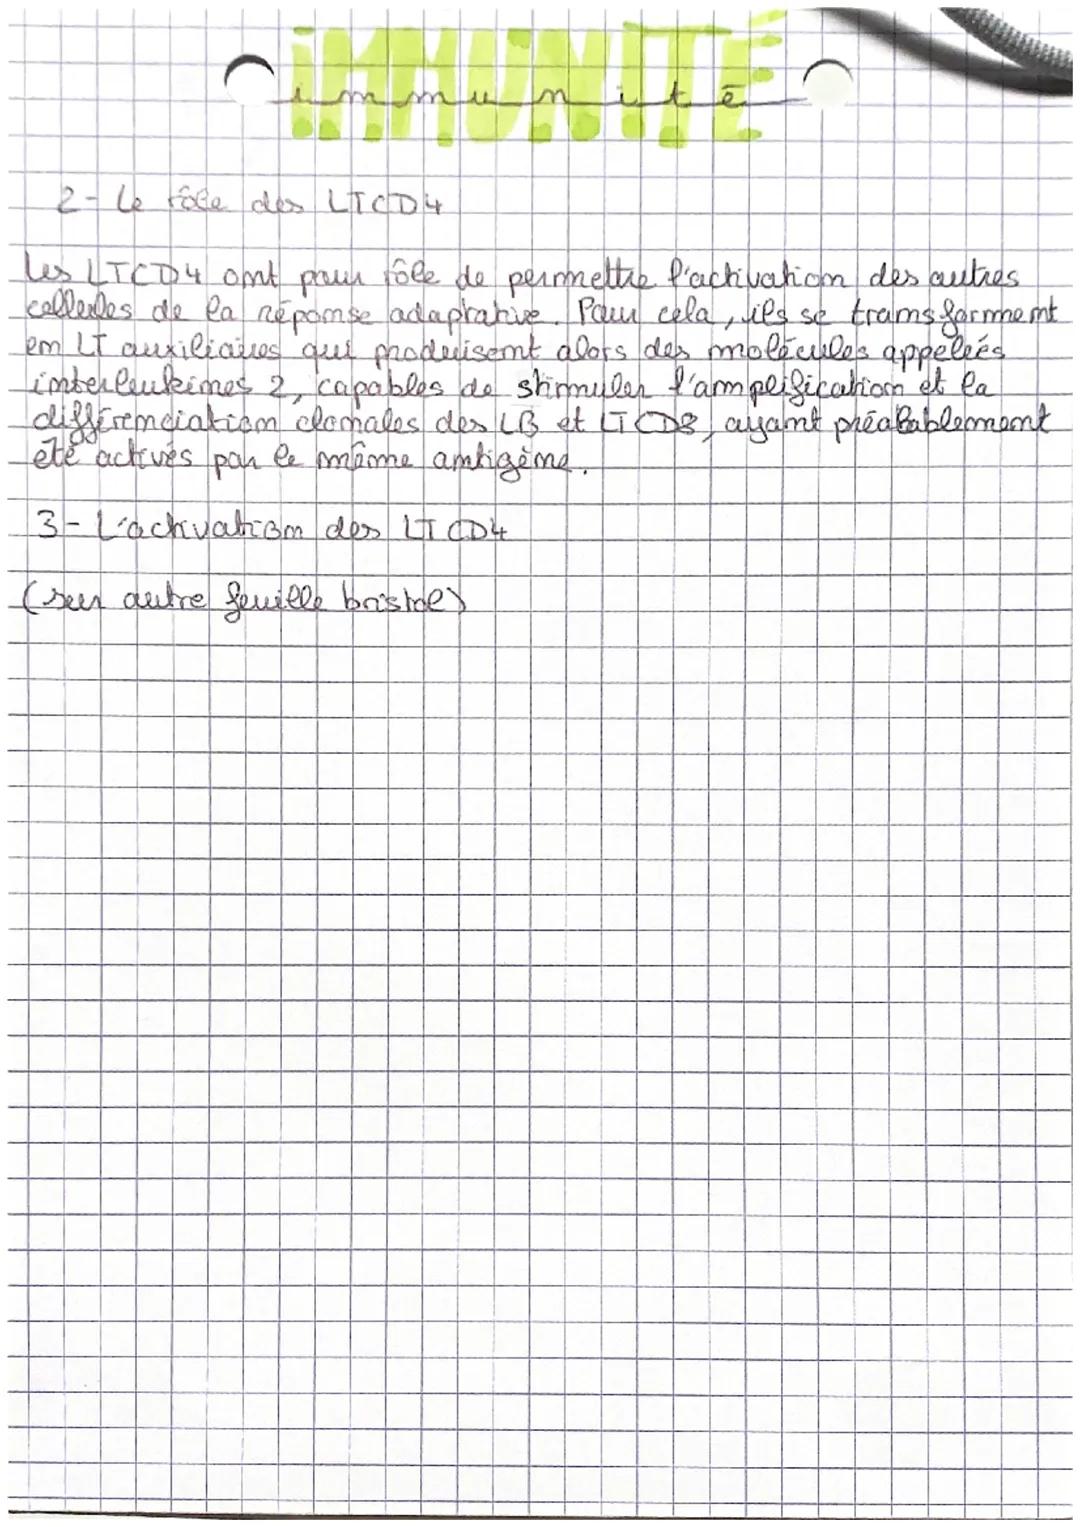 IMMUNITÉ
immunité
2- Le rôle des LTCD4
Les LTCD4 ont pour rôle de permettre l'activation des autres
cellules de la réponse adaptative. Pour cela, ils se transforment
en LT auxiliaires qui produisent alors des molécules appelées
interleukines 2, capables de stimuler l'amplification et la
différenciation clonales des LB et LTCD8, ayant préalablement
été activés par le même antigène.
3- L'activation des LTCD4
(sur autre feuille bristol)